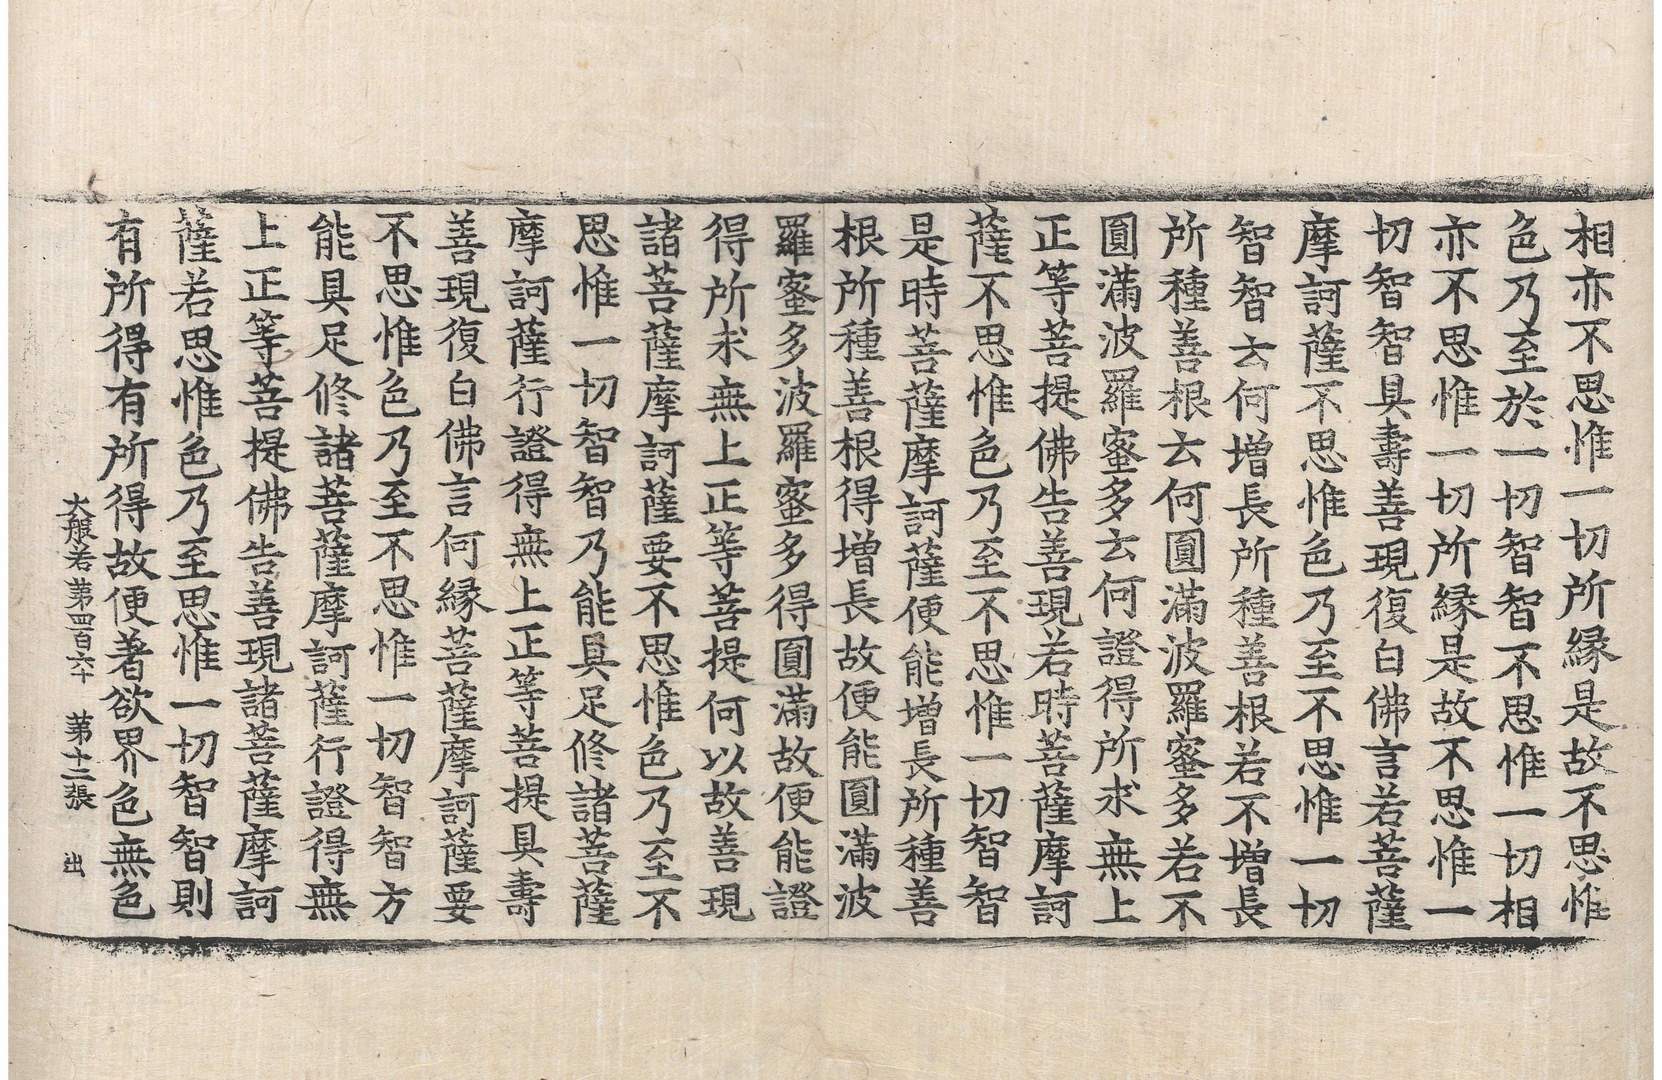 相亦不思惟一切所縁是故不思惟
色乃至於一切智智不思惟一切相
亦不思惟一切所縁是故不思惟一
切智智具壽善現復白佛言若菩薩
摩訶薩不思惟色乃至不思惟一切
智智云何增長所種善根若不增長
所種善根云何圓滿波羅蜜多若不
圓滿波羅蜜多云何證得所求無上
正等菩提佛告善現若時菩薩摩訶
薩不思惟色乃至不思惟一切智智
是時菩薩摩訶薩便能增長所種善
根所種善根得增長故便能圓滿波
羅蜜多波羅蜜多得圓滿故便能證
得所求無上正等菩提何以故善現
諸菩薩摩訶薩要不思惟色乃至不
思惟一切智智乃能具足修諸菩薩
摩訶薩行證得無上正等菩提具壽
善現復白佛言何縁菩薩摩訶薩要
不思惟色乃至不思惟一切智智方
能具足修諸菩薩摩訶薩行證得無
上正等菩提佛告善現諸菩薩摩訶
薩若思惟色乃至思惟一切智智則
有所得有所得故便著欲界色無色
大般若第四百六十 第十二張 出